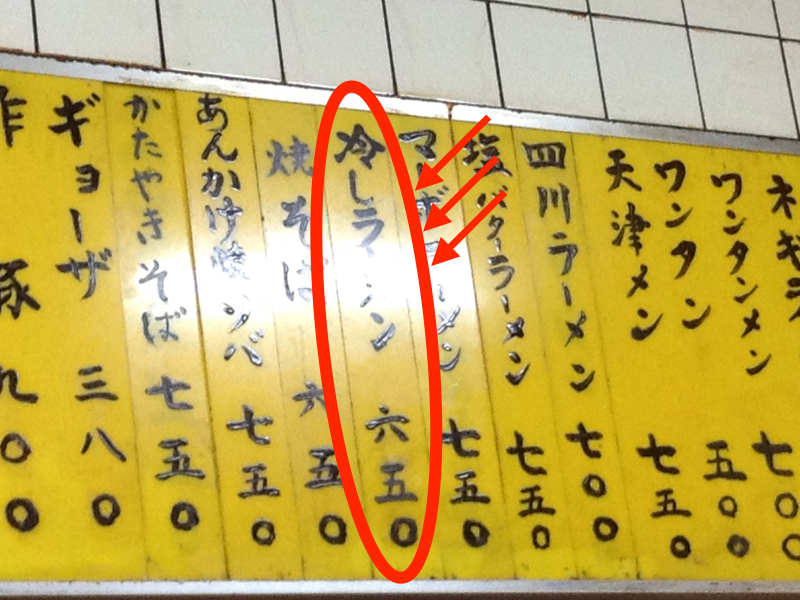 ネギラ
ワンタンメン 七〇〇
ワンタン 五〇〇
天津メン 七五〇
四川ラーメン 七〇〇
塩バターラーメン 七五〇
マーボラーメン 七五〇
冷しラーメン 六五〇
焼そば 六五〇
あんかけ焼ソバ 七五〇
かたやきそば 七五〇
ギョーザ 三八〇
豚 九〇〇